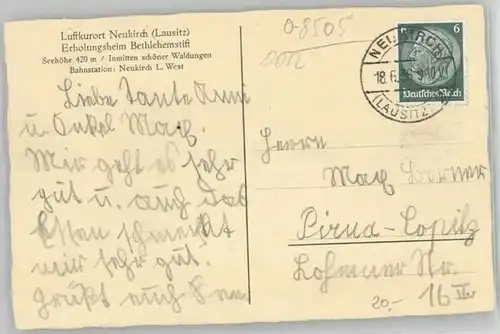 Luftkurort Neukirch (Lausitz)
Erholungsheim Bethlehemstift
Seehöhe 420 m / Inmitten schöner Waldungen
Bahnstation: Neukirch L. West
Liebe Tante Anni
u. Onkel Max.
Mir geht es sehr
gut u. auch das
Essen schmeckt
mir sehr gut.
grüßt euch
0-8505
NEUKIRCH
18.6.
(LAUSITZ)
6
Deutsches Reich
Herrn
Max
Pirna-Copitz
Lohmener Str.
16
20.-